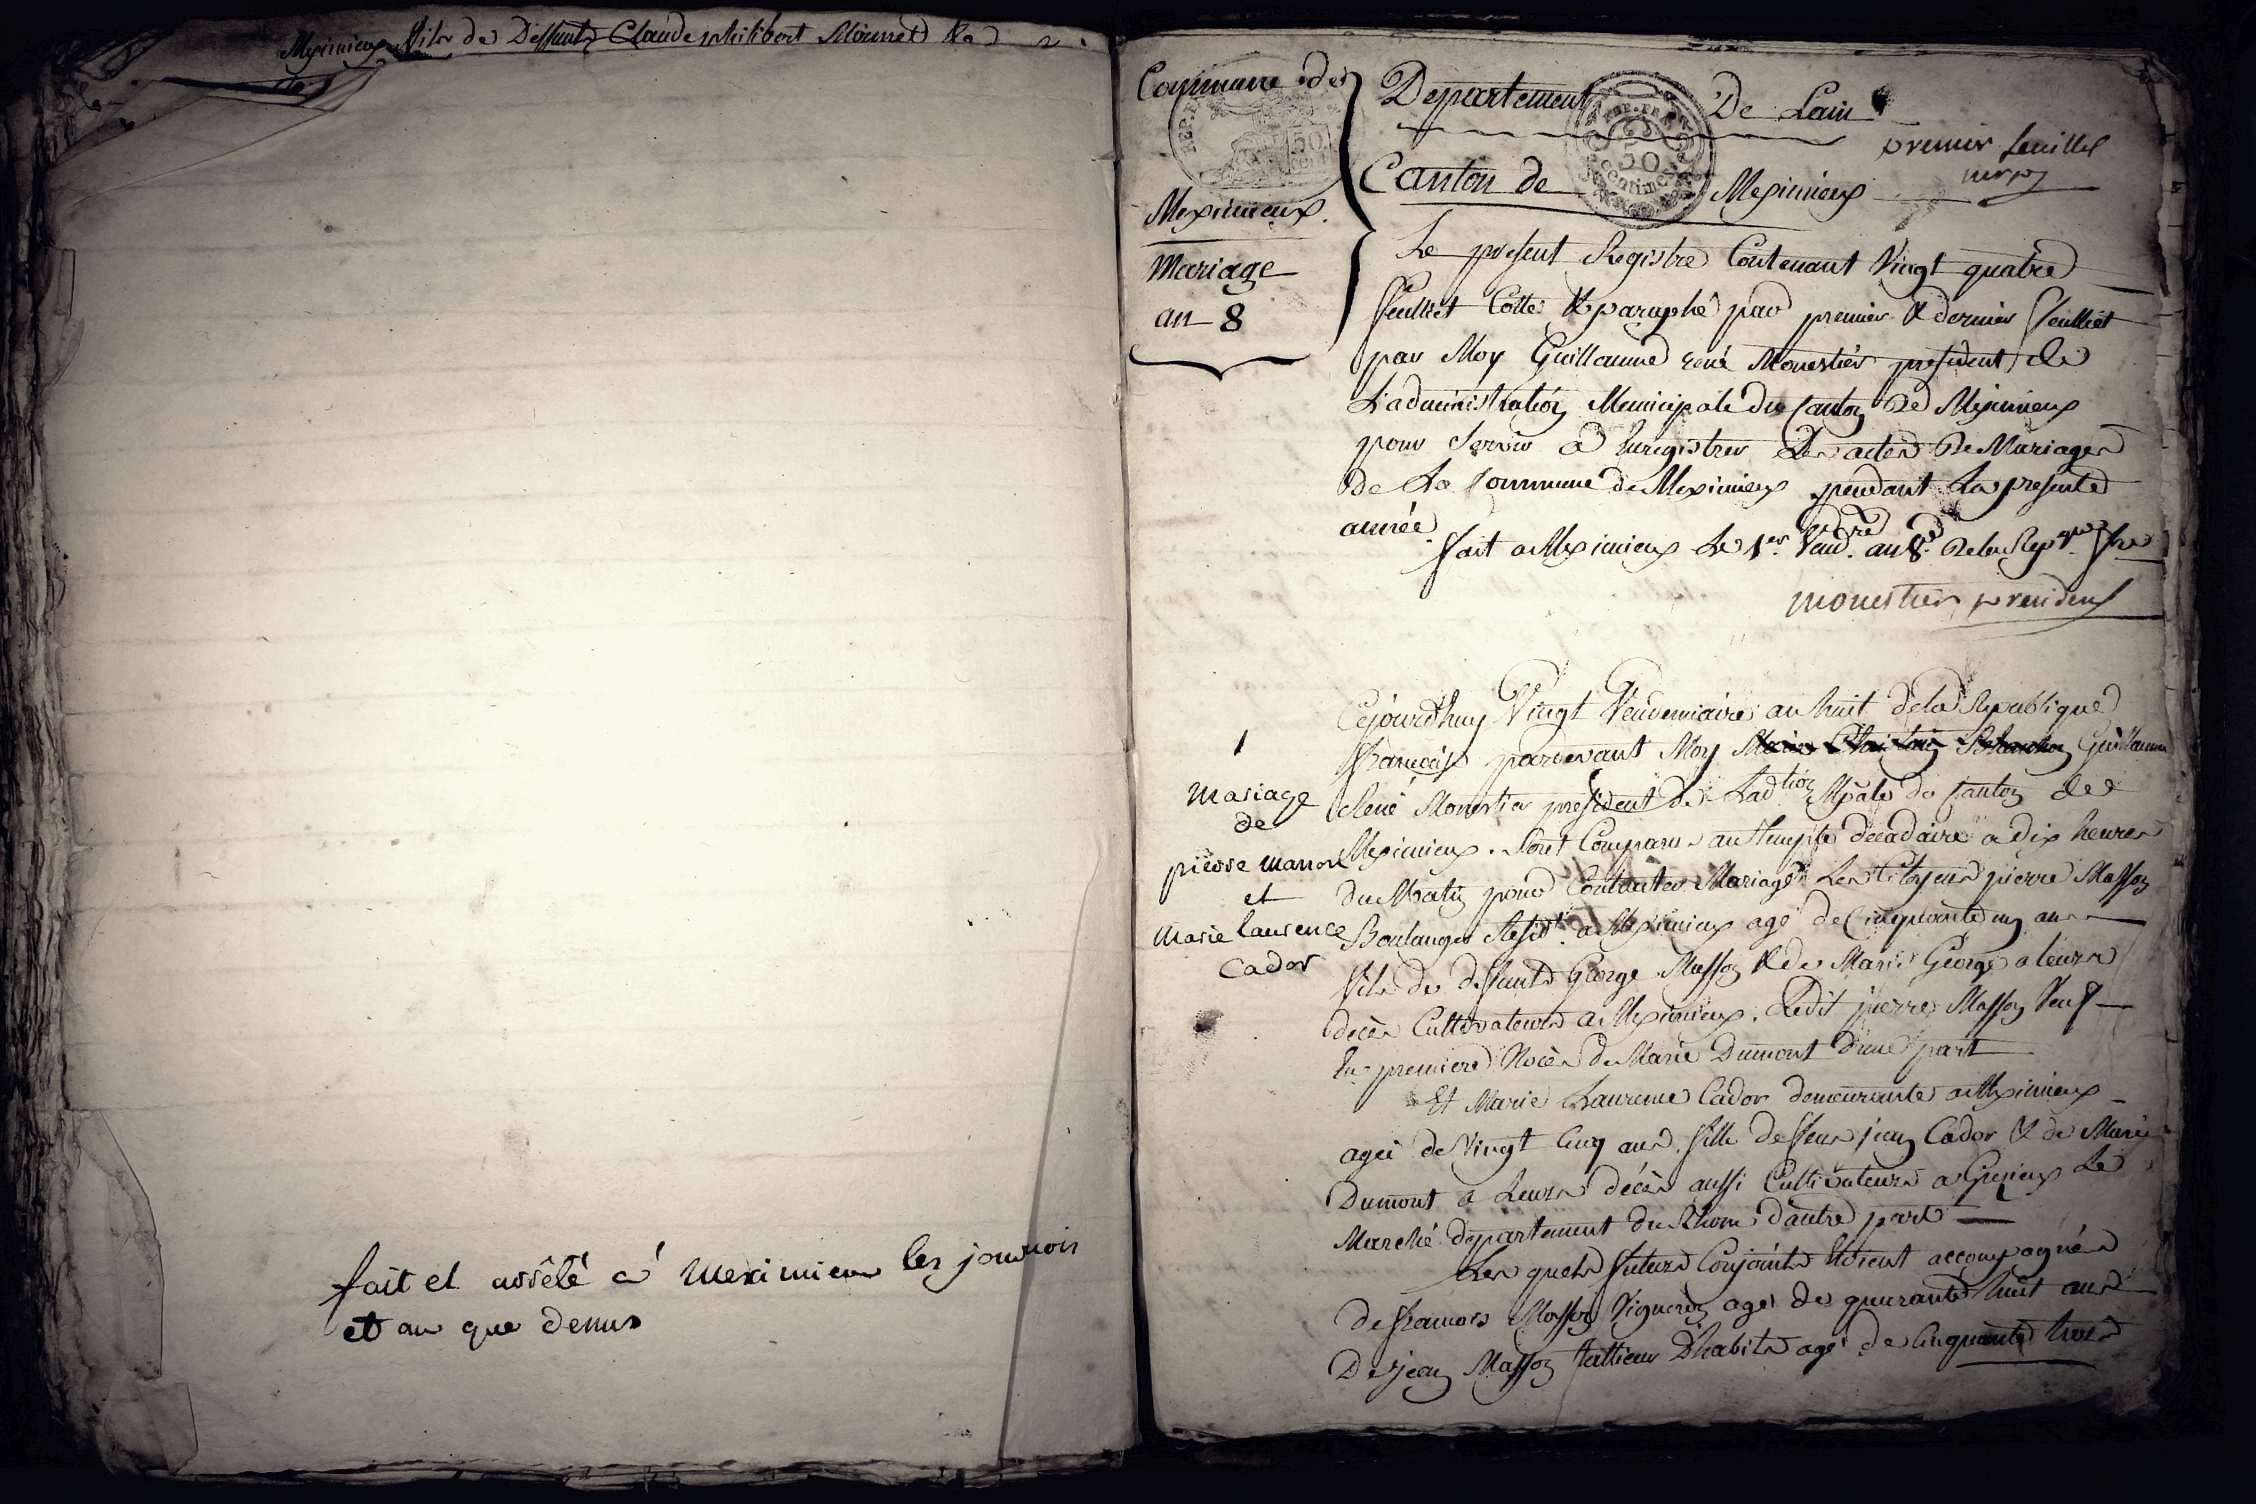 Meximieux fils de Deffunts Claude philibert Mornet & de
fait et arrêté a Meximieux les jour mois
et an que dessus
Commune de
Meximieux.
Mariage
an 8
Departement De Lain
REP. FRA.
50
Centimes
premier feuillet
Canton de Meximieux
Le present Registre Contenant Vingt quatre
feulliet Cotté & paraphé par premier & dernier feulliet
par Moy Guillaume rené Monestier president de
L'administration Municipale du Canton De Meximieux
pour Servir a Enregistrer Les actes De Mariages
de La Commune de Meximieux pendant La presente
année.
fait a Meximieux Le 1er Vendre an 8e De la Repque fse
monestier president
1
Mariage
de
pierre masson
et
Marie laurence
Cador
Cejourdhuy Vingt Vendemiaire an huit de la Republique
francaise pardevant Moy Guillaume
René Monestier president de Ladtion Mpale du Canton de
Meximieux. Sont Comparus au temple décadaire a dix heures
du Matin pour Contracter Mariage Les Citoyens pierre Masson
Boulanger Residt a Meximieux agé de Cinquante un ans
fils de deffunts George Masson & de Marie George a leurs
décès Cultivateurs a Meximieux. Ledit pierre Masson Veuf
En premiere Noces de Marie Dumont d'une part
Et Marie Laurence Cador demeurante a Meximieux
agée de Vingt Cinq ans fille de feus jean Cador & de Marie
Dumont a Leurs décès aussi Cultivateurs a Grezieux Le
Marché departement du Rhone d'autre part
Les quels futurs Conjoints Etoient accompagnés
de francois Masson Vigneron agé de quarante huit ans
De jean Masson tallieur D'habits agé de Cinquante trois